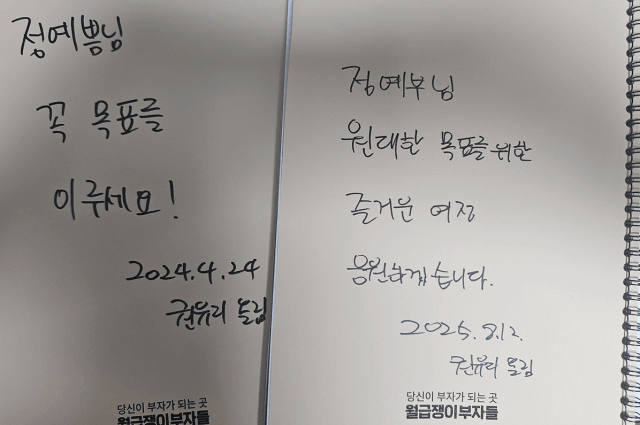 정예쁨님
꼭 목표를
이루세요!
2024.4.24
권유리 드림
당신이 부자가 되는 곳
월급쟁이부자들
정예부님
원대한 목표를 위한
즐거운 여정
응원하겠습니다.
2025.8.12.
권유리 드림
당신이 부자가 되는 곳
월급쟁이부자들